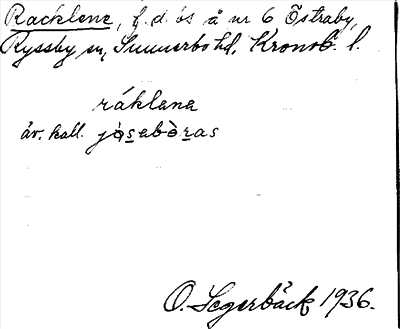 Racklene, f.d. ös å nr 6 Östraby,
Ryssby sn, Sunnerbo hd, Kronob. l.
ráklana
äv. kall. jòsabòras
O. Segerbäck 1936.